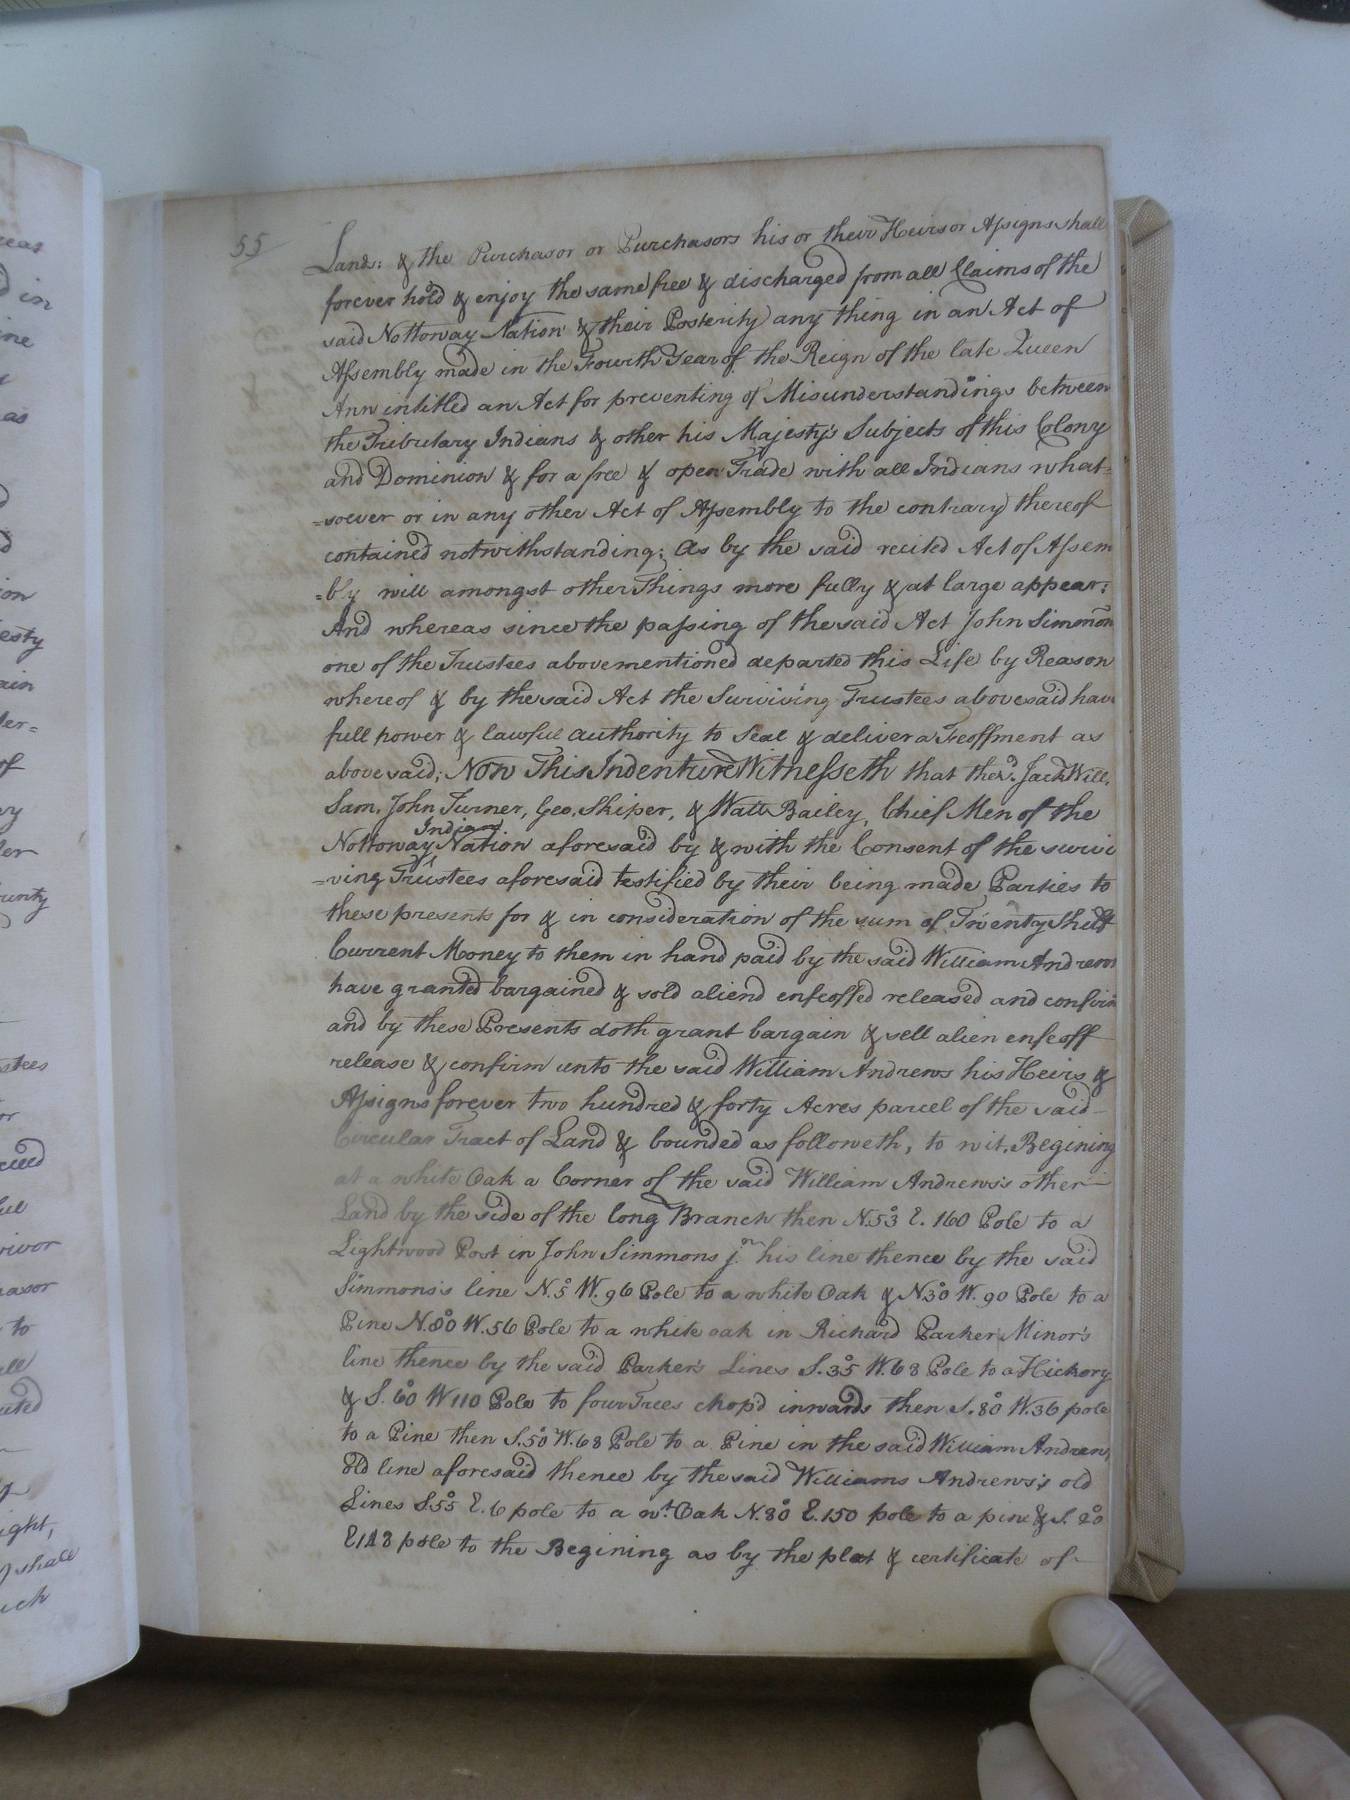 55
Lands: & the Purchasor or Purchasors his or their Heirs or Assigns shall
forever hold & enjoy the same free & discharged from all Claims of the
said Nottoway Nation & their Posterity any thing in an Act of
Assembly made in the Fourth Year of the Reign of the late Queen
Ann intitled an Act for preventing of Misunderstandings between
the Tributary Indians & other his Majesty's Subjects of this Colony
and Dominion & for a free & open Trade with all Indians what=
=soever or in any other Act of Assembly to the contrary thereof
contained notwithstanding: As by the said recited Act of Assem
=bly will amongst other Things more fully & at large appear:
And whereas since the passing of the said Act John Simmon
one of the Trustees abovementioned departed this Life by Reason
whereof & by the said Act the Surviving Trustees abovesaid hav
full power & lawful authority to Seal & deliver a Feoffment as
abovesaid; Now This Indenture Witnesseth that the sd. Jack Will,
Sam, John Turner, Geo. Skiper, & Watt Bailey, Chief Men of the
Indian
Nottoway Nation aforesaid by & with the Consent of the survi
=ving Trustees aforesaid testified by their being made Parties to
these presents for & in consideration of the sum of Twenty Shill
Current Money to them in hand paid by the said William Andrews
have granted bargained & sold aliend enfeoffed released and confirm
and by these Presents doth grant bargain & sell alien enfeoff
release & confirm unto the said William Andrews his Heirs &
Assigns forever two hundred & forty Acres parcel of the said
Circular Tract of Land & bounded as followeth, to wit, Begining
at a white Oak a Corner of the said William Andrews's other
Land by the side of the long Branch then N.53° E. 160 Pole to a
Lightwood Post in John Simmons jn. his line thence by the said
Simmons's line N.5° W. 96 Pole to a white Oak & N.30° W. 90 Pole to a
Pine N.80° W. 56 Pole to a white oak in Richard Parker Minor's
line thence by the said Parker's Lines S.35° W. 68 Pole to a Hickory
& S. 60° W 110 Pole to four Trees chop'd inwards then S. 80° W. 36 pole
to a Pine then S.50° W. 68 Pole to a Pine in the said William Andrew,
old line aforesaid thence by the said Williams Andrews's old
Lines S55° E. 6 pole to a wt. Oak N. 80° E. 150 pole to a pine & S. 20°
E148 pole to the Begining as by the plat & certificate of